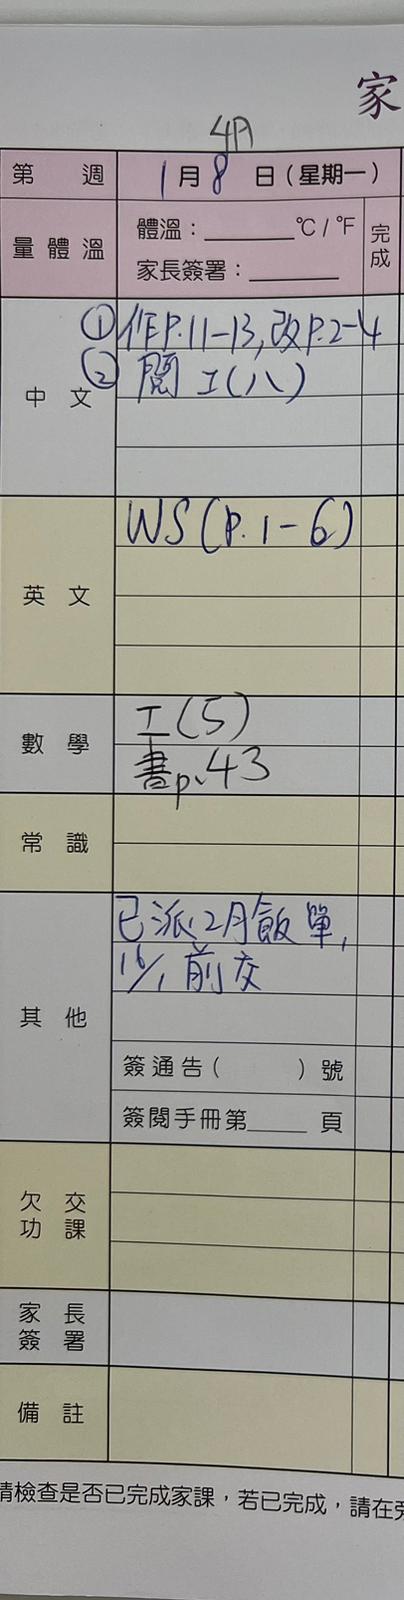 家
4A
第 週 1月8日(星期一)
量體溫 體溫:______℃/℉ 完成
家長簽署:______
中文 ①作P.11-13,改P.2-4
②閱工(八)
英文 WS(P.1-6)
數學 工(5)
書p.43
常識
其他 已派2月飯單,
16/1前交
簽通告( )號
簽閱手冊第____頁
欠交功課
家長簽署
備註
請檢查是否已完成家課,若已完成,請在旁